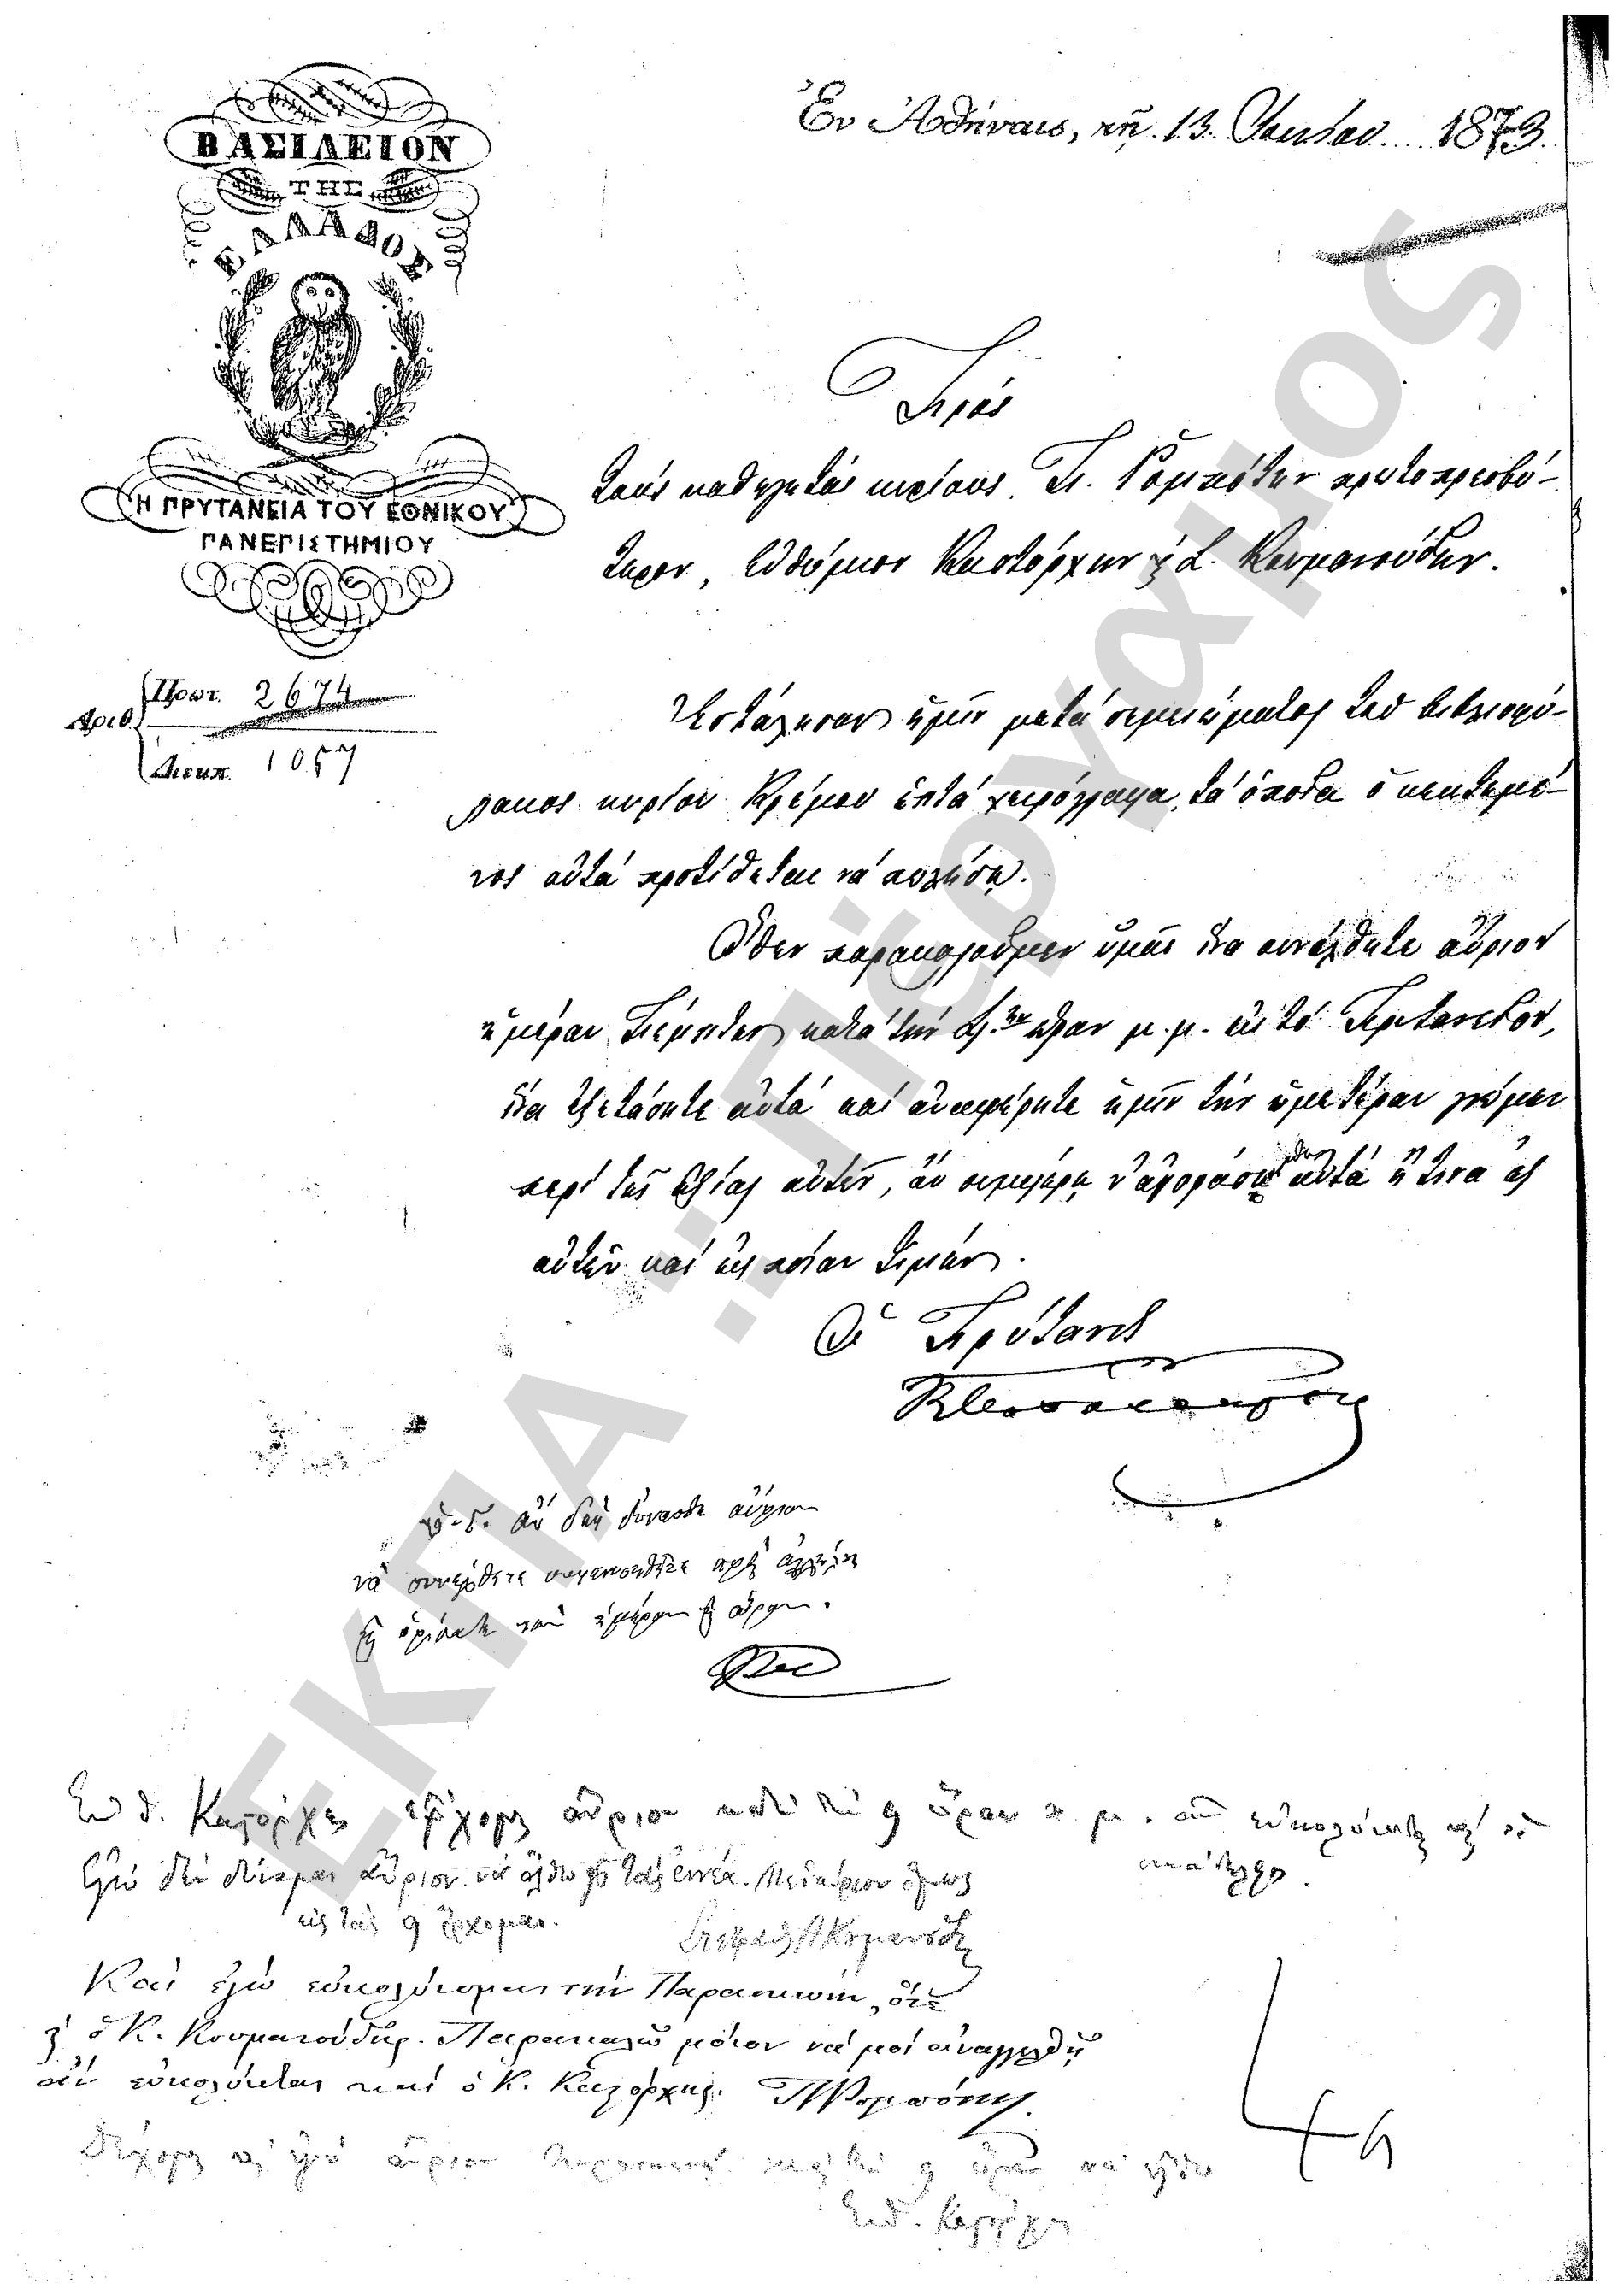 ΒΑΣΙΛΕΙΟΝ
ΤΗΣ
ΕΛΛΑΔΟΣ
Η ΠΡΥΤΑΝΕΙΑ ΤΟΥ ΕΘΝΙΚΟΥ
ΠΑΝΕΠΙΣΤΗΜΙΟΥ
Ἐν Ἀθήναις, τῇ 13 Ἰουνίου 1873
Αριθ. Πρωτ. 2674
Διεκπ. 1057
Πρὸς
τοὺς καθηγητὰς κυρίους Π. Ῥομπότην πρωτοπρεσβύ-
τερον, Εὐθύμιον Καστόρχην ϗ Σ. Κουμανούδην.
Ἐστάλησαν ἡμῖν μετὰ σημειώματος τοῦ βιβλιοφύ-
λακος κυρίου Κρέμου ἑπτὰ χειρόγραφα, τὰ ὁποῖα ὁ κεκτημέ-
νος αὐτὰ προτίθεται νὰ πωλήσῃ.
Ὅθεν παρακαλοῦμεν ὑμᾶς ἵνα συνέλθητε αὔριον
ἡμέραν Πέμπτην κατὰ τὴν ὥραν μ.μ. εἰς τὸ Πρυτανεῖον,
ἵνα ἐξετάσητε αὐτὰ καὶ ἀναφέρητε ἡμῖν τὴν ὑμετέραν γνώμην
περὶ τῆς ἀξίας αὐτῶν, ἂν συμφέρῃ ν' ἀγορασθῶσιν αὐτὰ ἤ τινα ἐξ
αὐτῶν καὶ εἰς ποίαν τιμήν.
Ὁ Πρύτανις
Υ.Γ. Ἂν δὲν δύνασθε αὔριον
νὰ συνέλθητε συνεννοηθῆτε πρὸς ἀλλήλους
ϗ ὁρίσατε τὴν ἡμέραν ϗ ὥραν.
Εὐθ. Καστόρχης ἔρχομαι αὔριον κατὰ τὴν 9 ὥραν π.μ. ἂν εὐκολύνεται καὶ οἱ
συνάδελφοι.
Ἐγὼ δὲν δύναμαι αὔριον νὰ ἔλθω εἰς τὰς ἐννέα. Μεθαύριον ὅμως
εἰς τὰς 9 ἔρχομαι. Στέφανος Α. Κουμανούδης
Καὶ ἐγὼ εὐκολύνομαι τὴν Παρασκευήν, ὅτε
ϗ ὁ Κ. Κουμανούδης. Παρακαλῶ μόνον νὰ μοὶ ἀναγγελθῇ
ἂν εὐκολύνεται καὶ ὁ Κ. Καστόρχης. Π. Ῥομπότης
ἔρχομαι ϗ ἐγὼ αὔριον Παρασκευὴν κατὰ τὴν 9 ὥραν νὰ ἔλθω
Εὐθ. Καστόρχης
ΕΚΠΑ "Πέργαμος"